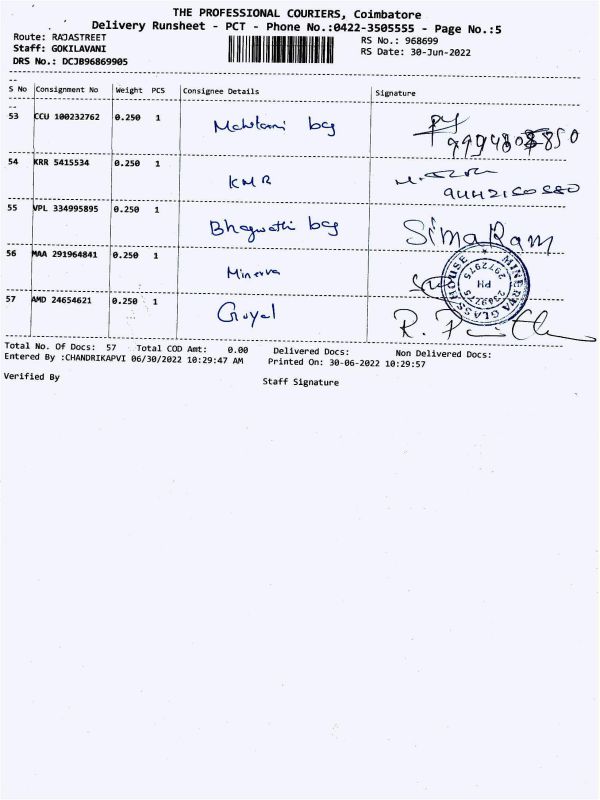 THE PROFESSIONAL COURIERS, Coimbatore
Delivery Runsheet - PCT - Phone No.:0422-3505555 - Page No.:5
Route: RAJASTREET RS No.: 968699
Staff: GOKILAVANI RS Date: 30-Jun-2022
DRS No.: DCJB96869905
S No Consignment No Weight PCS Consignee Details Signature
53 CCU 100232762 0.250 1 bag
54 KRR 5415534 0.250 1 KMR
9442150580
55 VPL 334995895 0.250 1 Bhagwathi bag SimaRam
56 MAA 291964841 0.250 1 Minerva
MINERVA GLASS HOUSE
PH
57 AMD 24654621 0.250 1 Goyal R.
Total No. Of Docs: 57 Total COD Amt: 0.00 Delivered Docs: Non Delivered Docs:
Entered By :CHANDRIKAPVI 06/30/2022 10:29:47 AM Printed On: 30-06-2022 10:29:57
Verified By Staff Signature